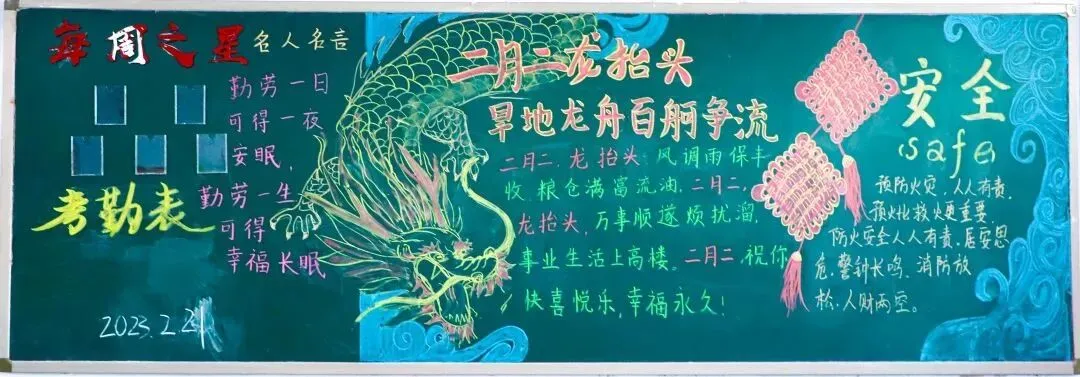 每周之星
名人名言
勤劳一日
可得一夜
安眠,
勤劳一生
可得
幸福长眠
考勤表
2023.2.21
二月二龙抬头
旱地龙舟百舸争流
二月二,龙抬头,风调雨保丰
收,粮仓满富流油,二月二,
龙抬头,万事顺遂烦扰溜,
事业生活上高楼。二月二,祝你
快喜悦乐,幸福永久!
安全
safe
预防火灾,人人有责,
预火比救火更重要,
防火安全人人有责,居安思
危,警钟长鸣,消防放
松,人财两空。